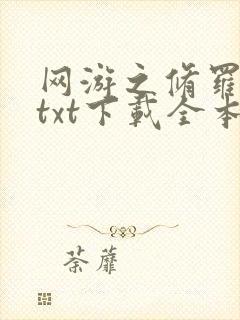 网游之修羅
txt下載全本
荼蘼